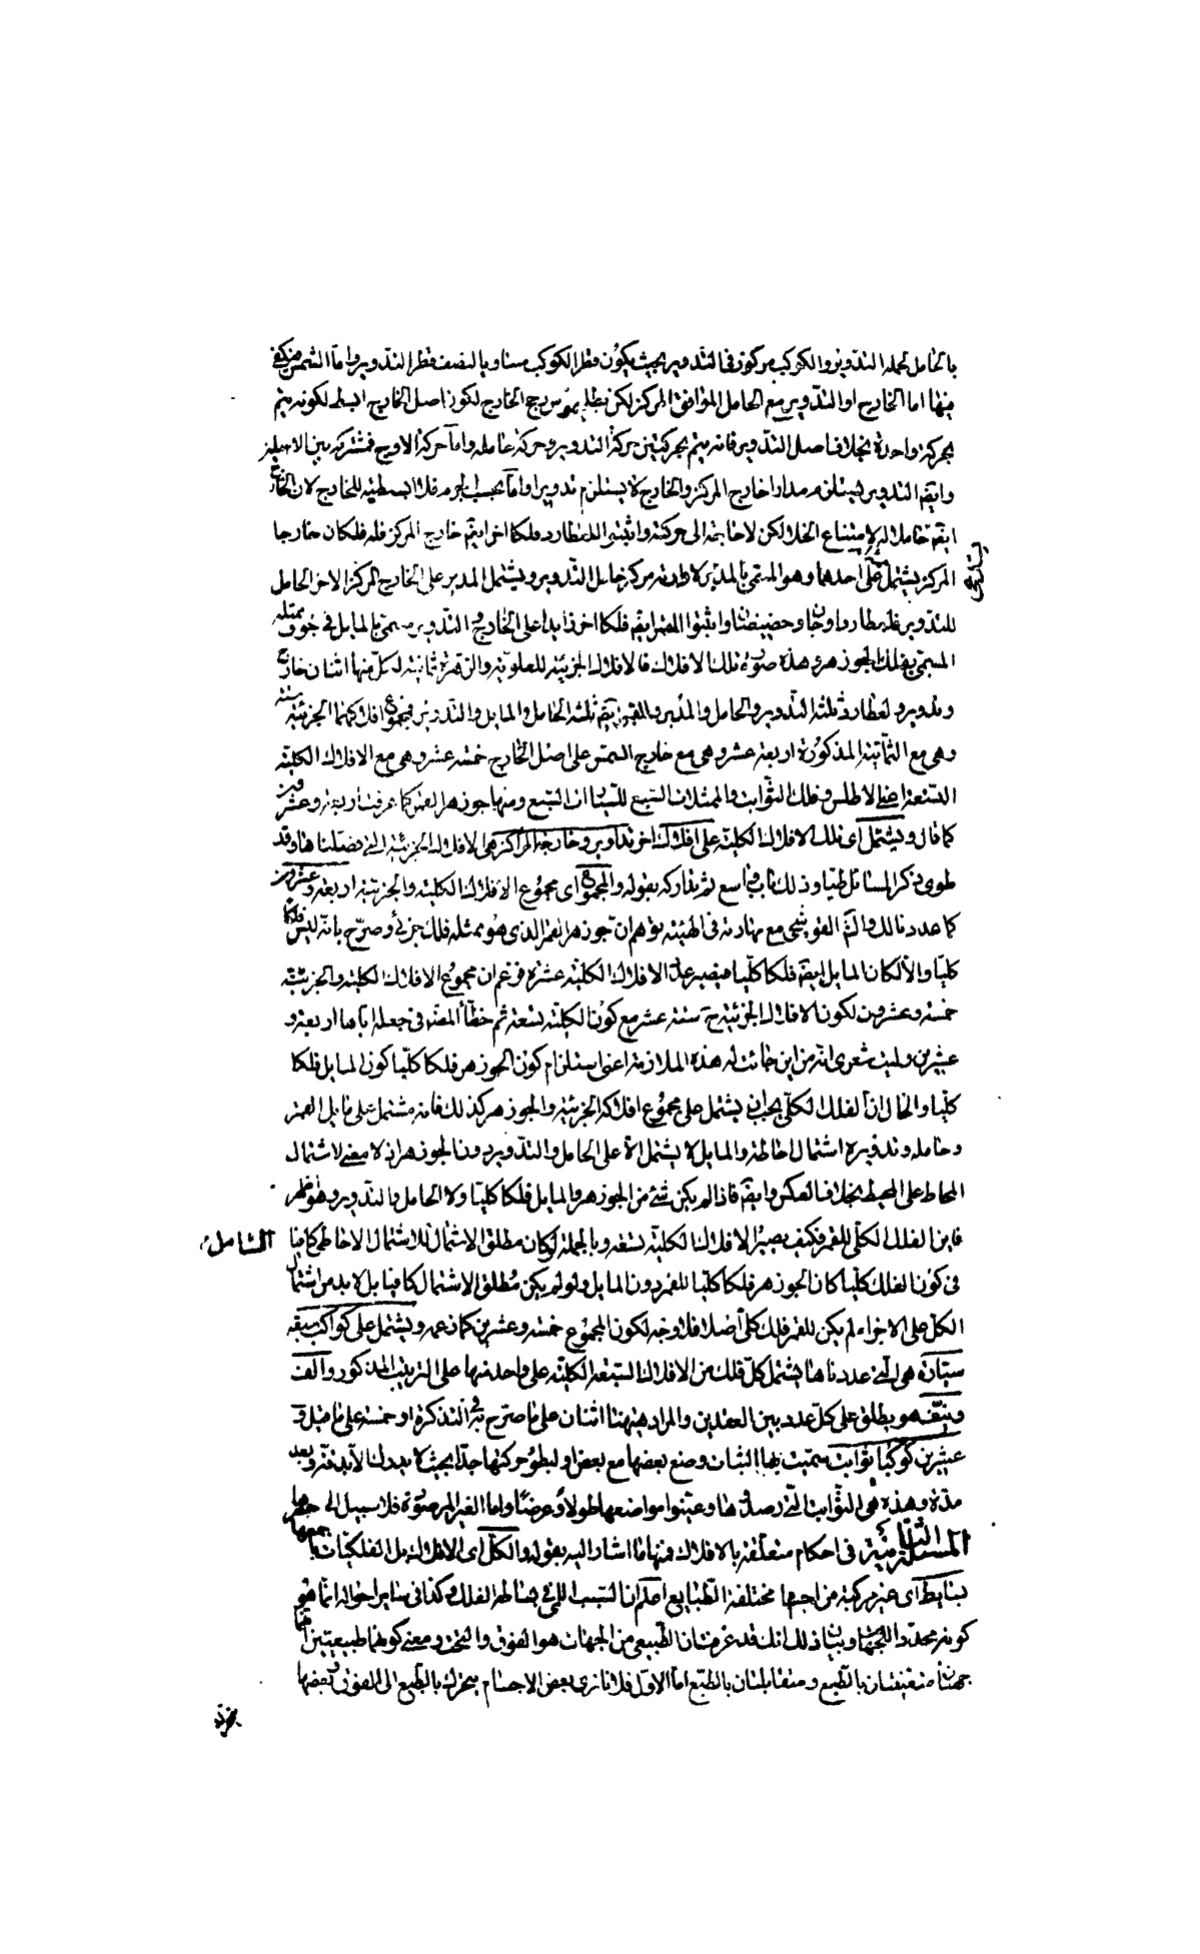 بالحامل لحمله التدوير والكوكب مركوز فى التدوير بحيث يكون قطر الكوكب مساويا لنصف قطر التدوير واما الشمس فيكفى
فيها اما الخارج او التدوير مع الحامل الموافق المركز لكن بطلميوس رجح الخارج لكون اصل الخارج ابسط لكونه يتم
بحركة واحدة بخلاف اصل التدوير فانه يتم بحركتين حركة التدوير وحركة حامله واما حركة الاوج فمشتركة بين الاصلين
وايضا التدوير يستلزم مدارا خارج المركز والخارج لا يستلزم تدويرا واما بحسب الجرم فلا ابسطية للخارج لان الخارج
ايضا حامله لامتناع الخلا لكن لا حاجة الى حركته واثبتوا لعطارد فلكا اخر ايضا خارج المركز فله فلكان خارجا
المركز يشتمل على احدهما وهو المسمى بالمدير لادارته مركز حامل التدوير ويشتمل المدير على الخارج المركز الاخر الحامل
للتدوير فلعطارد اوجان وحضيضان واثبتوا للقمر ايضا فلكا اخر زايدا على الخارج والتدوير يسمى بالمايل فى جوف ممثله
المسمى بفلك الجوزهر وهذه صورة تلك الافلاك فالافلاك الجزئية للعلوية والزهرة ثمانية لكل منها اثنان خارج
وتدوير ولعطارد ثلثة التدوير والحامل والمدير وللقمر ايضا ثلثة الحامل والمايل والتدوير فمجموع افلاكهما الجزئية ستة
وهى مع الثمانية المذكورة اربعة عشر وهى مع خارج الشمس على اصل الخارج خمسة عشر وهى مع الافلاك الكلية
التسعة اعنى الاطلس وفلك الثوابت والممثلات السبع للسيارات السبع ومنها جوزهر القمر كما عرفت اربعة وعشرون
كما قال ويشتمل اى تلك الافلاك الكلية على افلاك اخر تداوير وخارجة المراكز هى الافلاك الجزئية التى فصلناها وقد
طوى ذكر المسائل طيا وذلك باب واسع ثم تداركه بقوله والمجموع اى مجموع الافلاك الكلية والجزئية اربعة وعشرون
كما عدد نالك والقوشجى مع مهارته فى الهيئة توهم ان جوزهر القمر الذى هو ممثله فلك جزئى وصرح بانه ليس فلكا
كليا والا لكان المايل ايضا فلكا كليا فيصير عدد الافلاك الكلية عشرة فزعم ان مجموع الافلاك الكلية والجزئية
خمسة وعشرون لكون الافلاك الجزئية ح ستة عشر مع كون الكلية تسعة ثم خطأ المصنف فى جعله اياها اربعة و
عشرين وليت شعرى انه من اين جائت له هذه الملازمة اعنى استلزام كون الجوزهر فلكا كليا كون المايل فلكا
كليا والحال ان الفلك الكلى يجب ان يشتمل على مجموع افلاكه الجزئية والجوزهر كذلك فانه مشتمل على مايل القمر
وحامله وتدويره اشتمال احاطة والمايل لا يشتمل الا على الحامل والتدوير دون الجوزهر اذ لا معنى لاشتمال
المحاط على المحيط بخلاف العكس وايضا فاذا لم يكن شئ من الجوزهر والمايل فلكا كليا ولا الحامل والتدوير وهو ظهر
فاين الفلك الكلى للقمر فكيف يصير الافلاك الكلية تسعة وبالجملة لو كان مطلق الاشتمال للاشتمال الاحاطى كافيا الشامل
فى كون الفلك كليا كان الجوزهر فلكا كليا للقمر دون المايل ولو لم يكن مطلق الاشتمال كافيا بل لا بد من اشتمال
الكل على الاجزاء لم يكن للقمر فلك كلى اصلا فلا وجه لكون المجموع خمسة وعشرين كما زعمه ويشتمل على كواكب سبعة
سيارة هى التى عددناها يشتمل كل فلك من الافلاك السبعة الكلية على واحد منها على الترتيب المذكور والف
ونيف هو يطلق على كل عدد بين العقدين والمراد هيهنا اثنان على ما صرح به فى التذكرة او خمسة على ما قيل و
عشرين كوكبا ثوابت سميت بها لثبات وضع بعضها مع بعض او لبطؤ حركتها جدا بحيث لا يدرك الا بدقة وبعد
مدة وهذه هى الثوابت التى رصدوها وعينوا مواضعها طولا وعرضا واما الغير المرصودة فلا سبيل الى حصرها
المسئلة الثانية فى احكام متعلقة بالافلاك فمنها ما اشار اليه بقوله والكل اى الافلاك بل الفلكيات جمعها
بسايط اى غير مركبة من اجسام مختلفة الطبايع اعلم ان السبب اللمى فى بساطة الفلك وكذا فى ساير احواله انما هو
كونه محدد اللجهات وبيان ذلك انك قد عرفت ان الطبيعى من الجهات هو الفوق والتحت ومعنى كونهما طبيعيتين انهما
جهتان متعينتان بالطبع ومتقابلتان بالطبع اما الاول فلانا نرى بعض الاجسام يتحرك بالطبع الى الفوق وبعضها